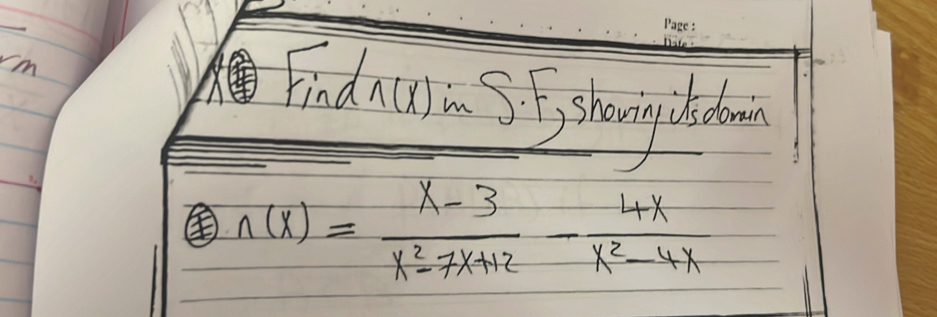 rm
Page :
Date :
Find n(x) in S.F, showing its domain
n(x) = x-3 / x²-7x+12 - 4x / x²-4x